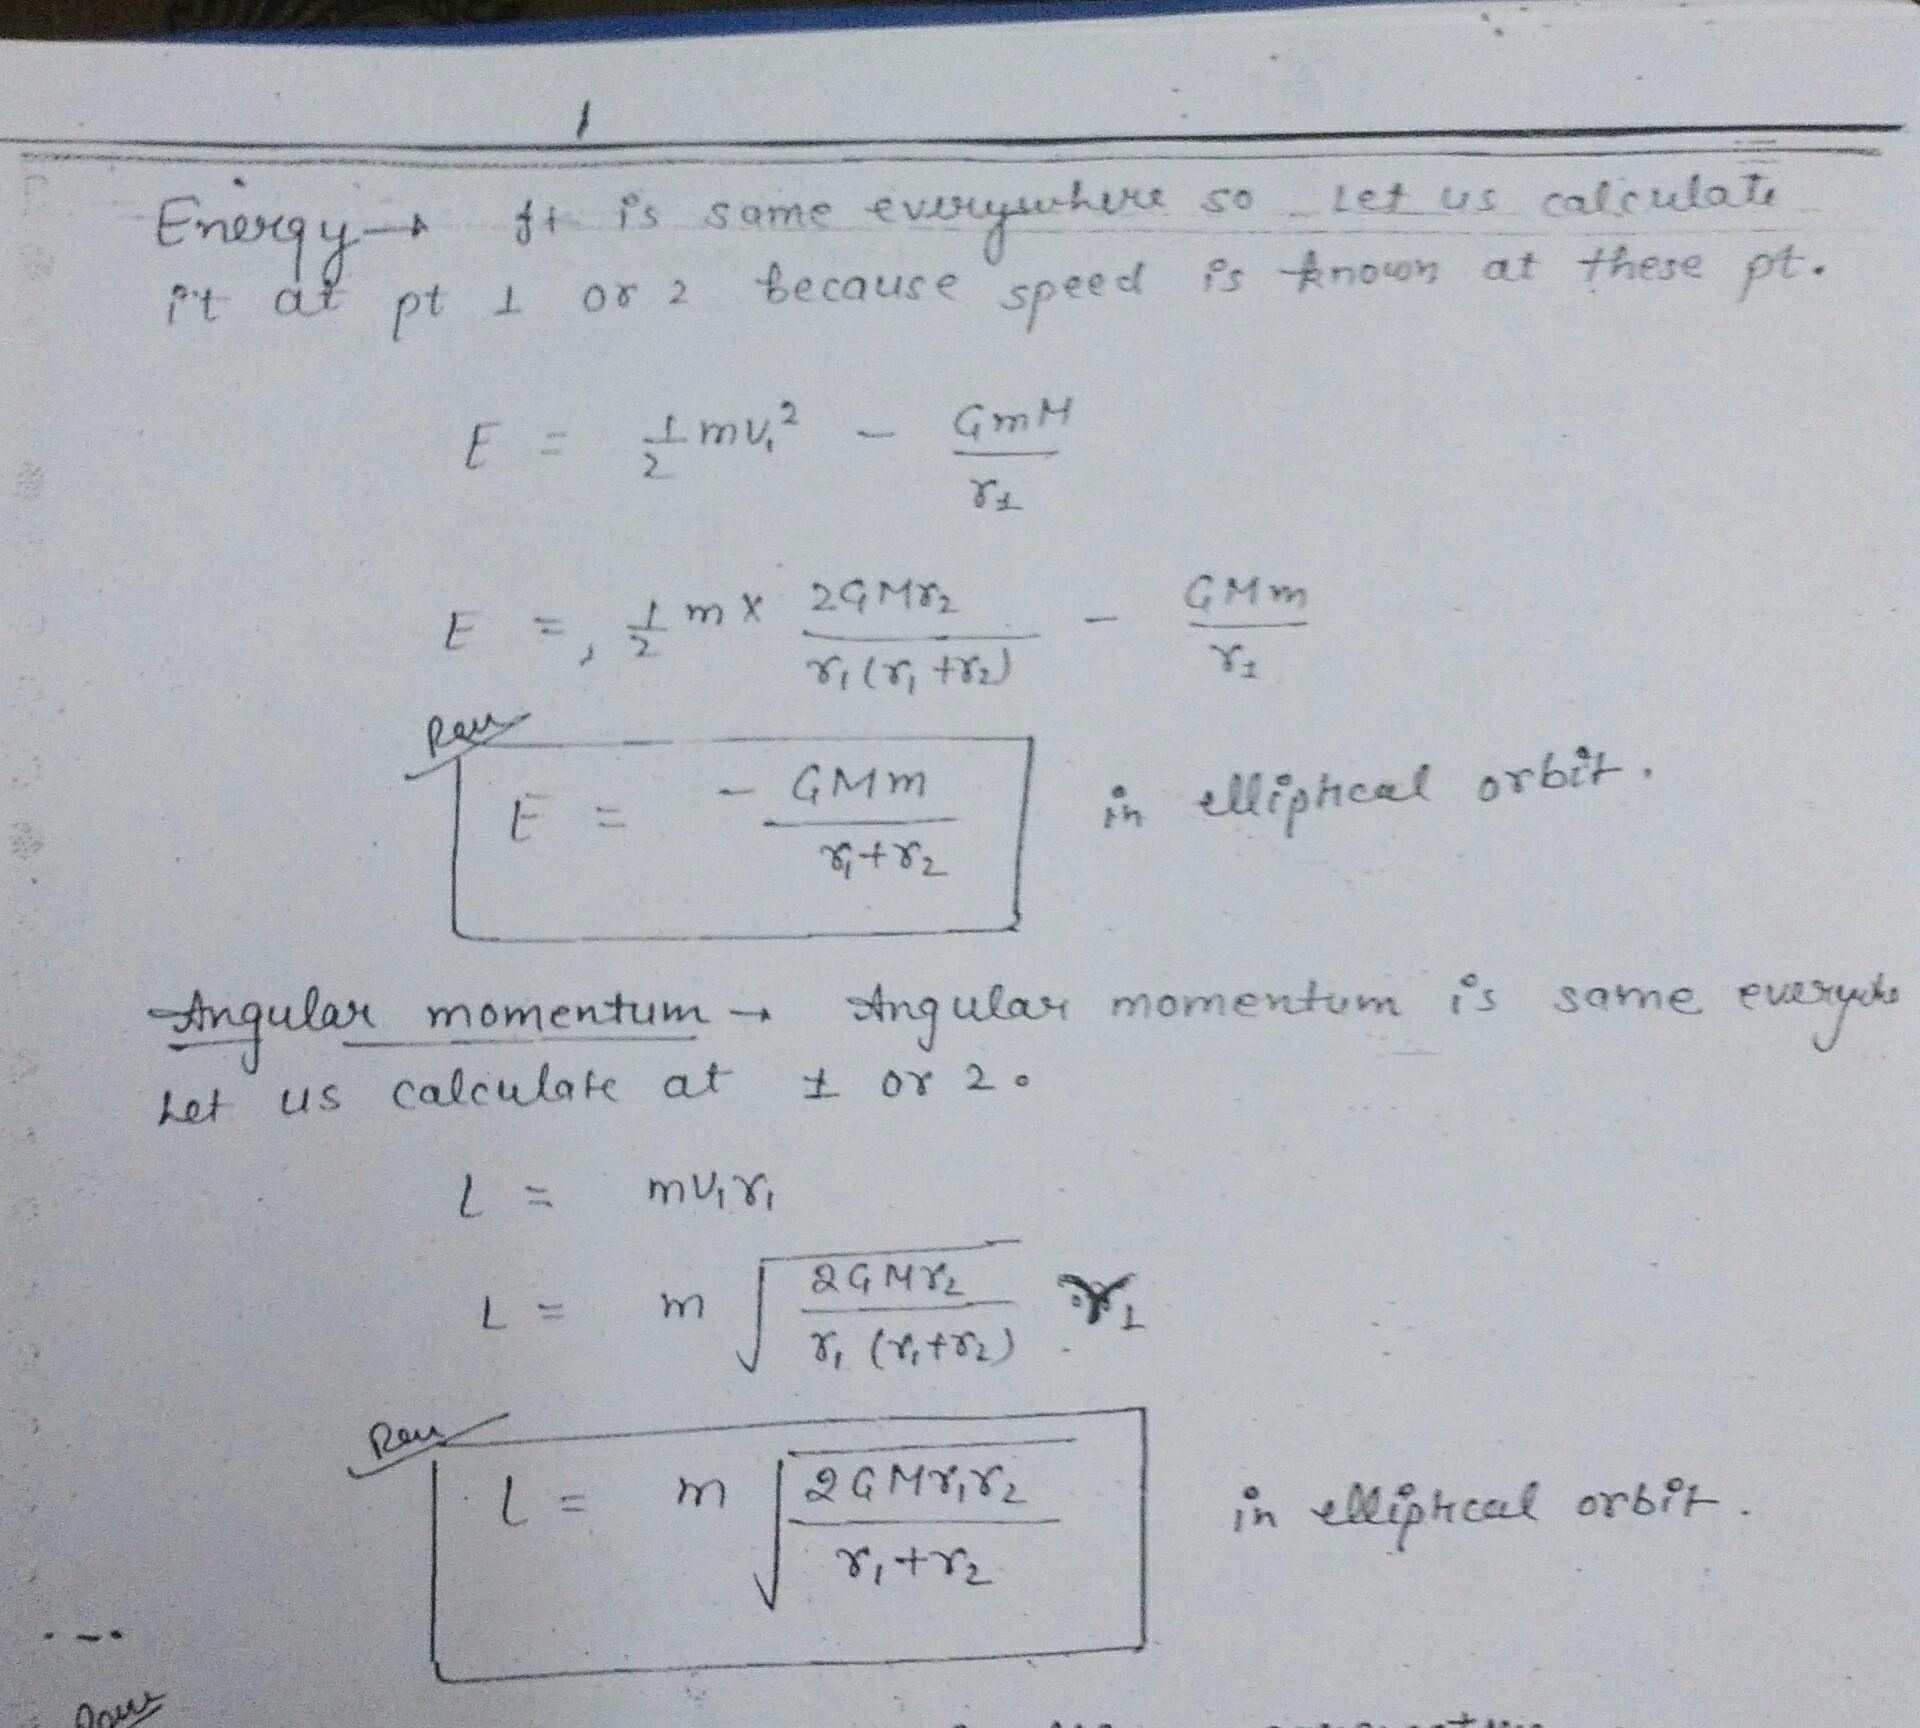 Energy → It is same everywhere so Let us calculate
it at pt 1 or 2 because speed is known at these pt.
E = 1/2 mv₁² - GmM/r₁
E = 1/2 m × 2GMr₂/r₁(r₁+r₂) - GMm/r₁
E = - GMm/r₁+r₂ in elliptical orbit.
Angular momentum → Angular momentum is same
Let us calculate at 1 or 2.
L = mv₁r₁
L = m √(2GMr₂/r₁(r₁+r₂)) r₁
L = m √(2GMr₁r₂/r₁+r₂) in elliptical orbit.